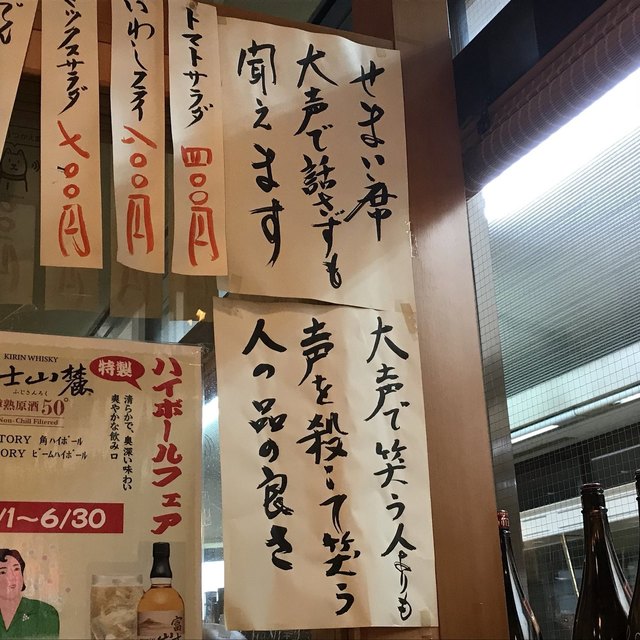 せまい席
大声で話さずも
聞えます
大声で笑う人よりも
声を殺して笑う
人の品の良さ
トマトサラダ
四〇〇円
八〇〇円
ックスサラダ
七〇〇円
KIRIN WHISKY
士山麓
ふじさんろく
熟原酒50°
Non-Chill Filtered
特製
ハイボールフェア
清らかで、奥深い味わい
爽やかな飲み口
TORY 角ハイボール
ORY ビームハイボール
/1~6/30